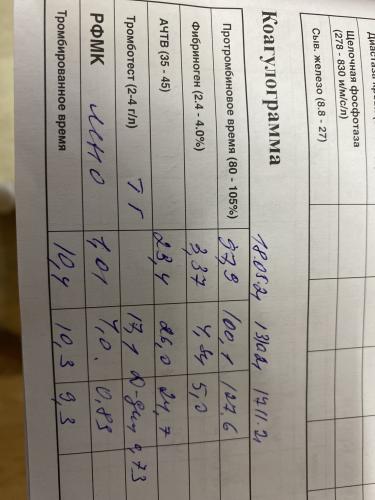 Щелочная фосфотаза
(278 - 830 и/м/с/л)
Сыв. железо (8.8 - 27)
Коагулограмма 17.11.21
Протромбиновое время (80 - 105%) 100,1 127,6
Фибриноген (2.4 - 4.0%) 3,37 5,0
АЧТВ (35 - 45) 23,4 26,0 24,7
Тромботест (2-4 г/л) 17,1
РФМК МНО 1,01 0,83
Тромбированное время 10,4 10,3 9,3